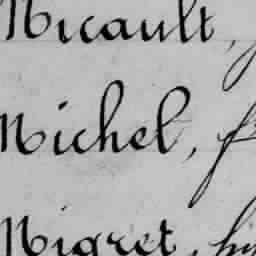 Micault,
Michel,
Migret,